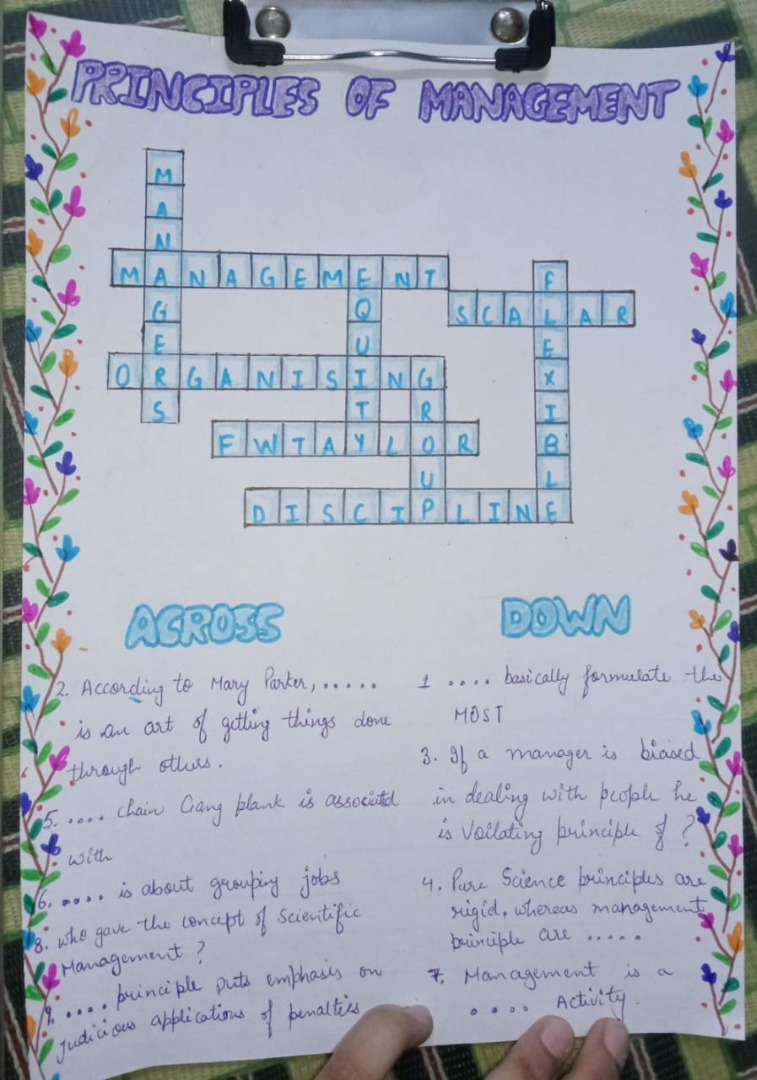 PRINCIPLES OF MANAGEMENT
MANAGERS
MANAGEMENT
EQUITY
FLEXIBLE
SCALAR
ORGANISING
GROUP
FWTAYLOR
DISCIPLINE
ACROSS
2. According to Mary Parker, .....
is an art of getting things done
through others.
5. .... chain Gang plank is associated
with
6. .... is about grouping jobs
8. who gave the concept of Scientific
Management ?
9. .... principle puts emphasis on
judicious applications of penalties
DOWN
1 .... basically formulate the
MOST
3. If a manager is biased
in dealing with people he
is Voilating principle of ?
4. Pure Science principles are
rigid, whereas management
principle are .....
7. Management is a
.... Activity.